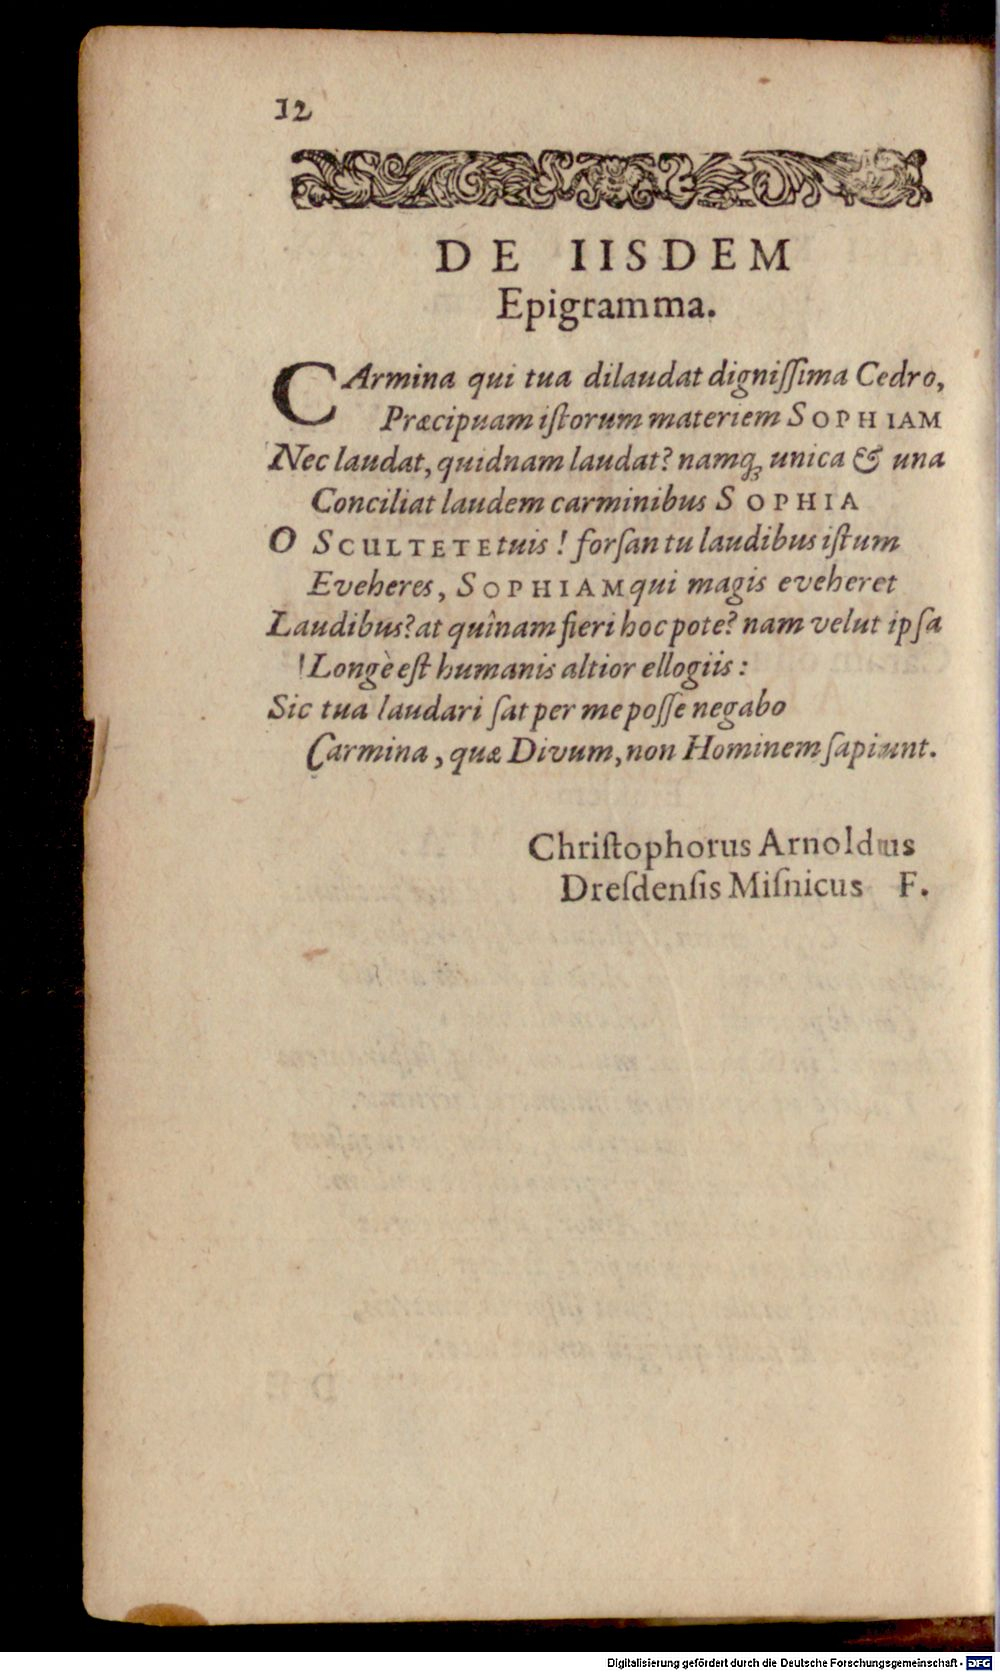 12
DE IISDEM
Epigramma.
CArmina qui tua dilaudat digniſſima Cedro,
Præcipuam iſtorum materiem SOPHIAM
Nec laudat, quidnam laudat? namq; unica & una
Conciliat laudem carminibus SOPHIA
O SCULTETE tuis! forſan tu laudibus iſtum
Eveheres, SOPHIAM qui magis eveheret
Laudibus? at quînam fieri hoc pote? nam velut ipſa
Longè eſt humanis altior ellogiis:
Sic tua laudari ſat per me poſſe negabo
Carmina, quæ Divum, non Hominem ſapiunt.
Chriſtophorus Arnoldus
Dreſdenſis Miſnicus F.
Digitalisierung gefördert durch die Deutsche Forschungsgemeinschaft - DFG